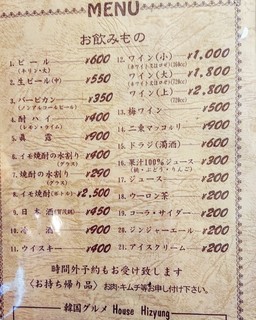 MENU
お飲みもの
1. ビール ¥600
(キリン・大)
2. 生ビール(中) ¥550
3. バービカン ¥350
(ノンアルコールビール)
4. 酎ハイ ¥400
(レモン・ライム)
5. 眞露 ¥900
6. イモ焼酎の水割り ¥400
(グラス)
7. 焼酎の水割り ¥290
(グラス)
8. イモ焼酎(ボトル) ¥2,500
9. 日本酒 ¥450
10. 酒 ¥900
11. ウイスキー ¥400
12. ワイン(小) ¥1,000
ワイン(大) ¥1,800
ワイン(上) ¥2,800
13. 梅ワイン ¥500
14. 二東マッコルリ ¥900
15. ドラジ(濁酒) ¥600
16. 果汁100%ジュース ¥300
(桃・ぶどう・りんご)
17. ジュース ¥200
18. ウーロン茶 ¥200
19. コーラ・サイダー ¥200
20. ジンジャーエール ¥200
21. アイスクリーム ¥200
時間外予約もお受け致します
〈お持ち帰り品〉お肉・キムチ等お申し付け下さい。
韓国グルメ House Hizyung